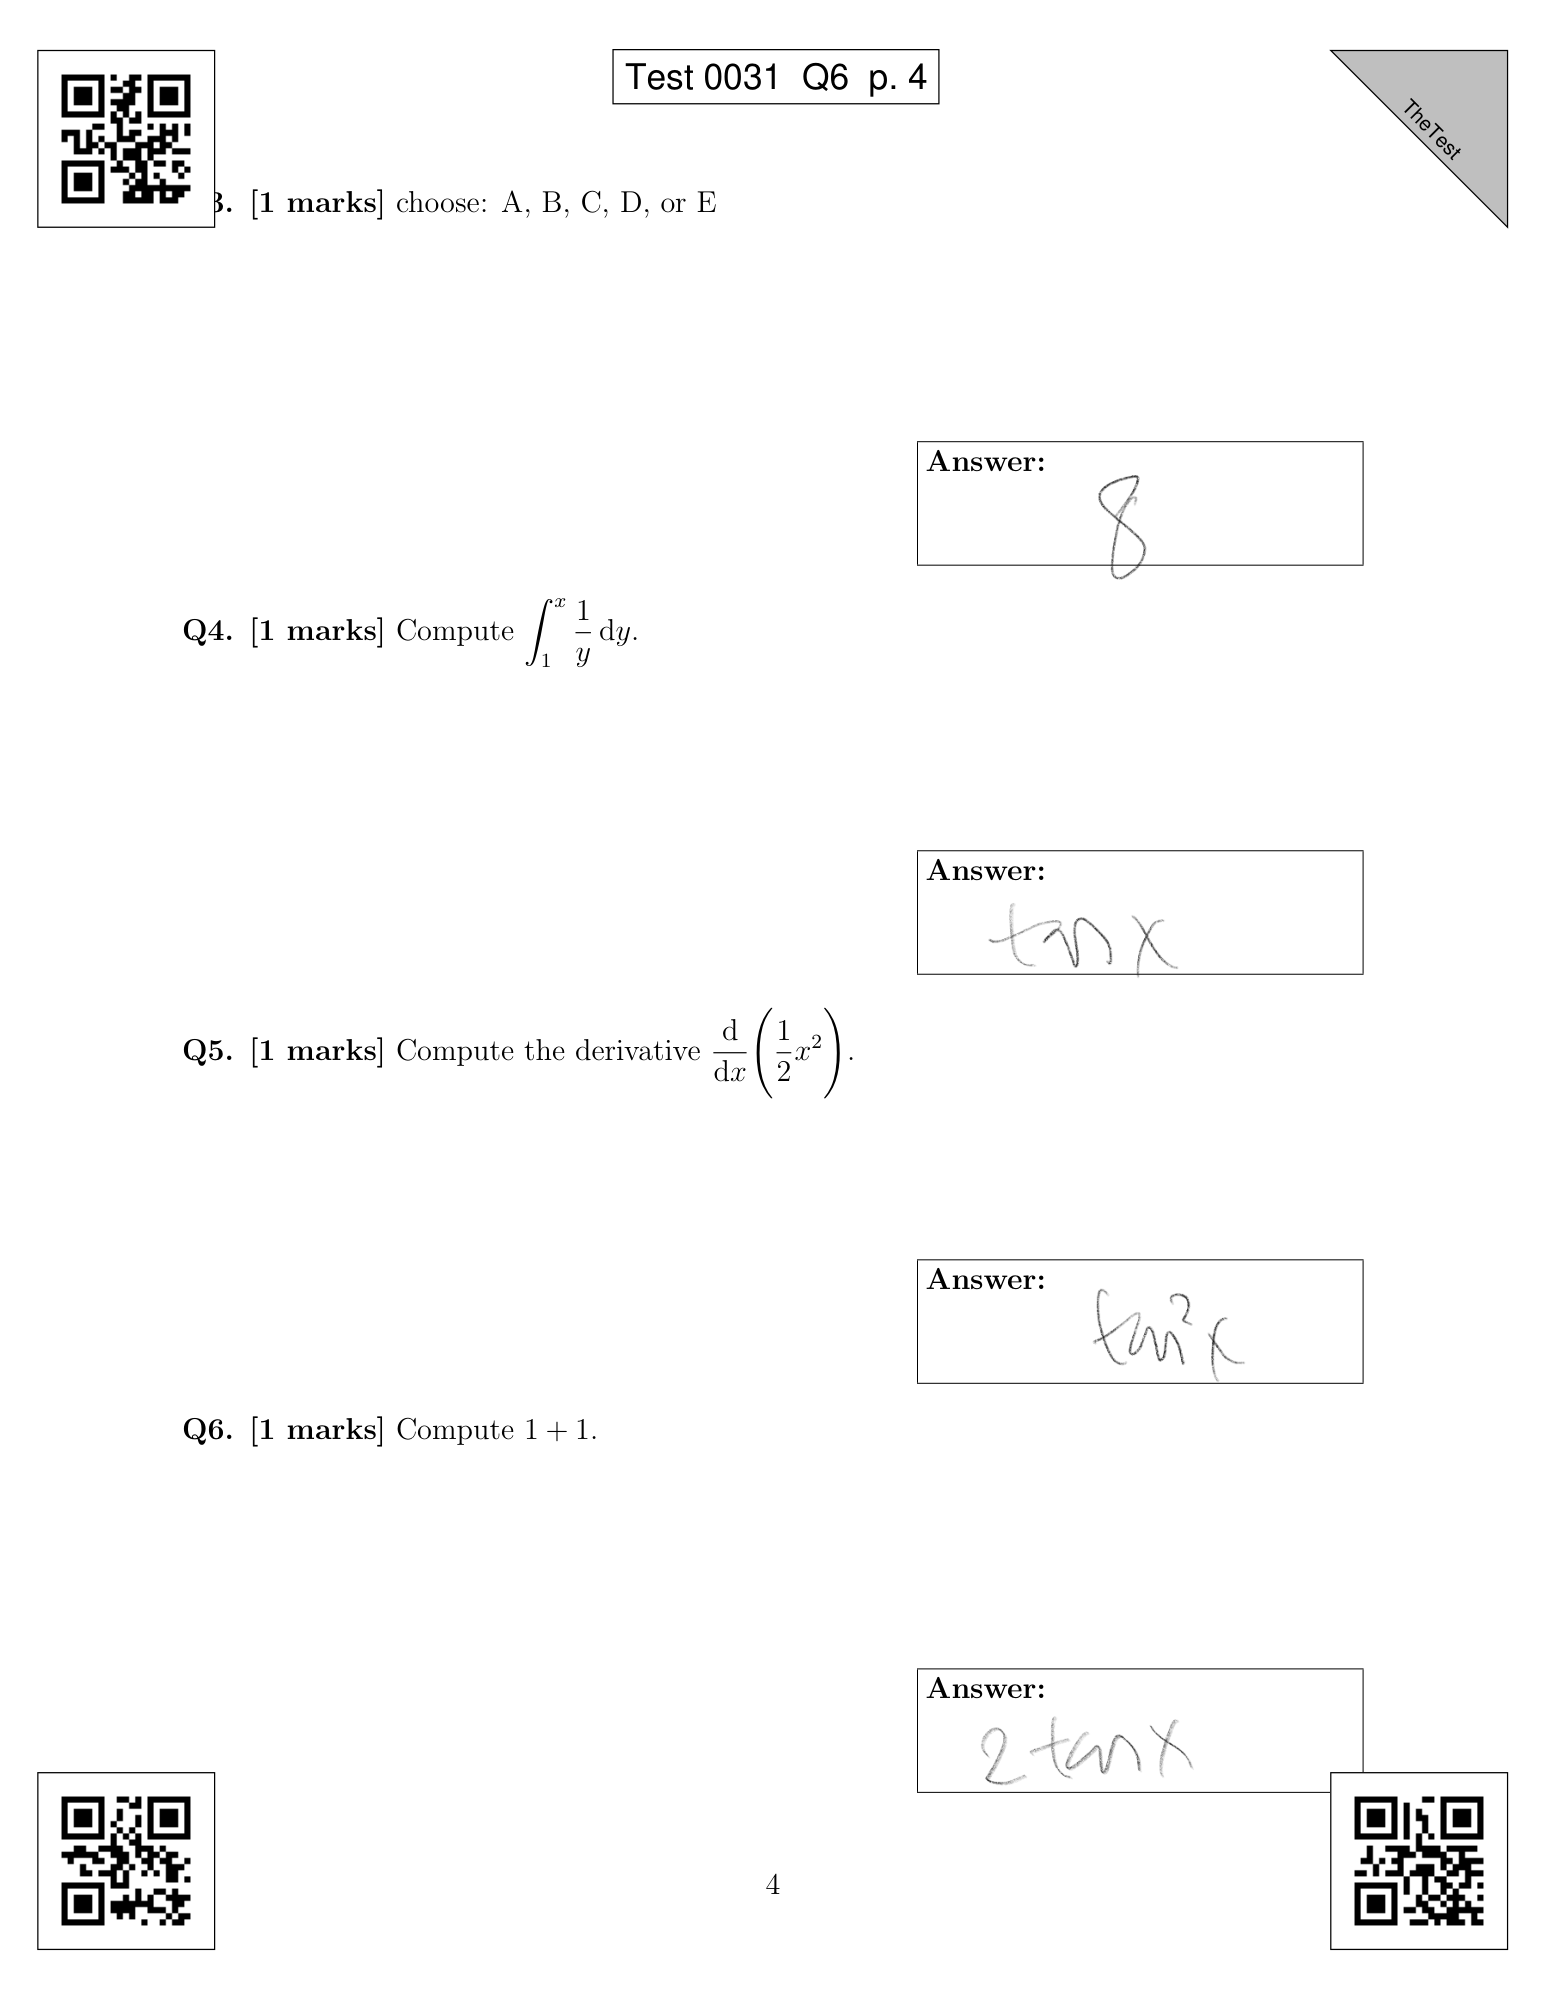 Test 0031 Q6 p. 4
TheTest
3. [1 marks] choose: A, B, C, D, or E
Answer:
8
Q4. [1 marks] Compute ∫₁ˣ 1/y dy.
Answer:
tan x
Q5. [1 marks] Compute the derivative d/dx(1/2 x²).
Answer:
tan² x
Q6. [1 marks] Compute 1 + 1.
Answer:
2 tan x
4